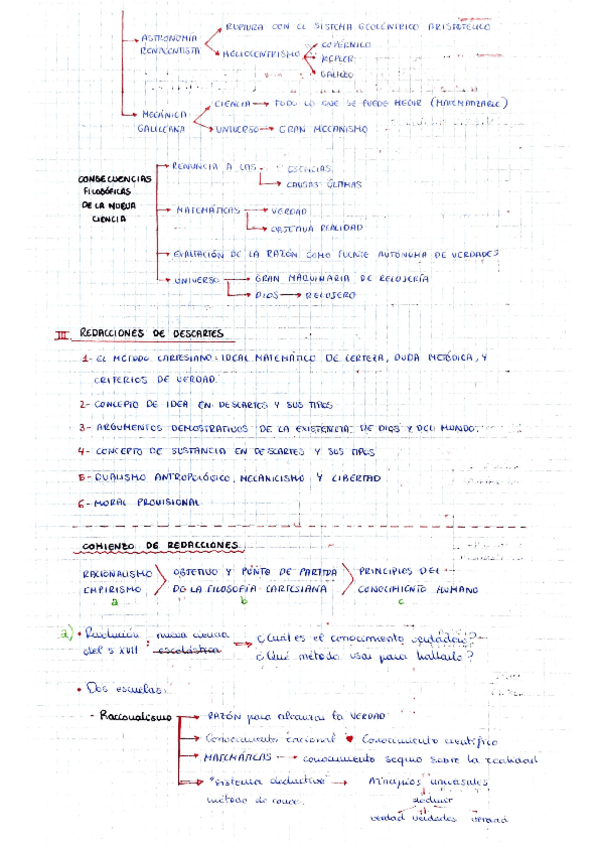 RUPTURA CON EL SISTEMA GEOCÉNTRICO ARISTOTÉLICO
ASTRONOMÍA RENACENTISTA
HELIOCENTRISMO
COPÉRNICO
KEPLER
GALILEO
MECÁNICA GALILEANA
CIENCIA → TODO LO QUE SE PUEDE MEDIR (MATEMATIZABLE)
UNIVERSO → GRAN MECANISMO
CONSECUENCIAS FILOSÓFICAS DE LA NUEVA CIENCIA
RENUNCIA A LAS ESENCIAS
CAUSAS ÚLTIMAS
MATEMÁTICAS → VERDAD
OBJETIVA REALIDAD
EXALTACIÓN DE LA RAZÓN COMO FUENTE AUTÓNOMA DE VERDADES
UNIVERSO → GRAN MAQUINARIA DE RELOJERÍA
DIOS → RELOJERO
III REDACCIONES DE DESCARTES
1- EL MÉTODO CARTESIANO: IDEAL MATEMÁTICO DE CERTEZA, DUDA METÓDICA, Y
CRITERIOS DE VERDAD.
2- CONCEPTO DE IDEA EN DESCARTES Y SUS TIPOS
3- ARGUMENTOS DEMOSTRATIVOS DE LA EXISTENCIA DE DIOS Y DEL MUNDO.
4- CONCEPTO DE SUSTANCIA EN DESCARTES Y SUS TIPOS
5- DUALISMO ANTROPOLÓGICO, MECANICISMO Y LIBERTAD
6- MORAL PROVISIONAL
COMIENZO DE REDACCIONES
RACIONALISMO OBJETIVO Y PUNTO DE PARTIDA PRINCIPIOS DEL
EMPIRISMO DE LA FILOSOFÍA CARTESIANA CONOCIMIENTO HUMANO
a b c
a) • Revolución : nueva ciencia → ¿Cuál es el conocimiento verdadero?
del s XVII escolástica ¿Qué método usar para hallarlo?
• Dos escuelas:
- Racionalismo → RAZÓN para alcanzar la VERDAD
Conocimiento racional Conocimiento científico
MATEMÁTICAS → conocimiento seguro sobre la realidad
"Sistema deductivo" → Principios universales
método de
deducir
verdad verdades verdad